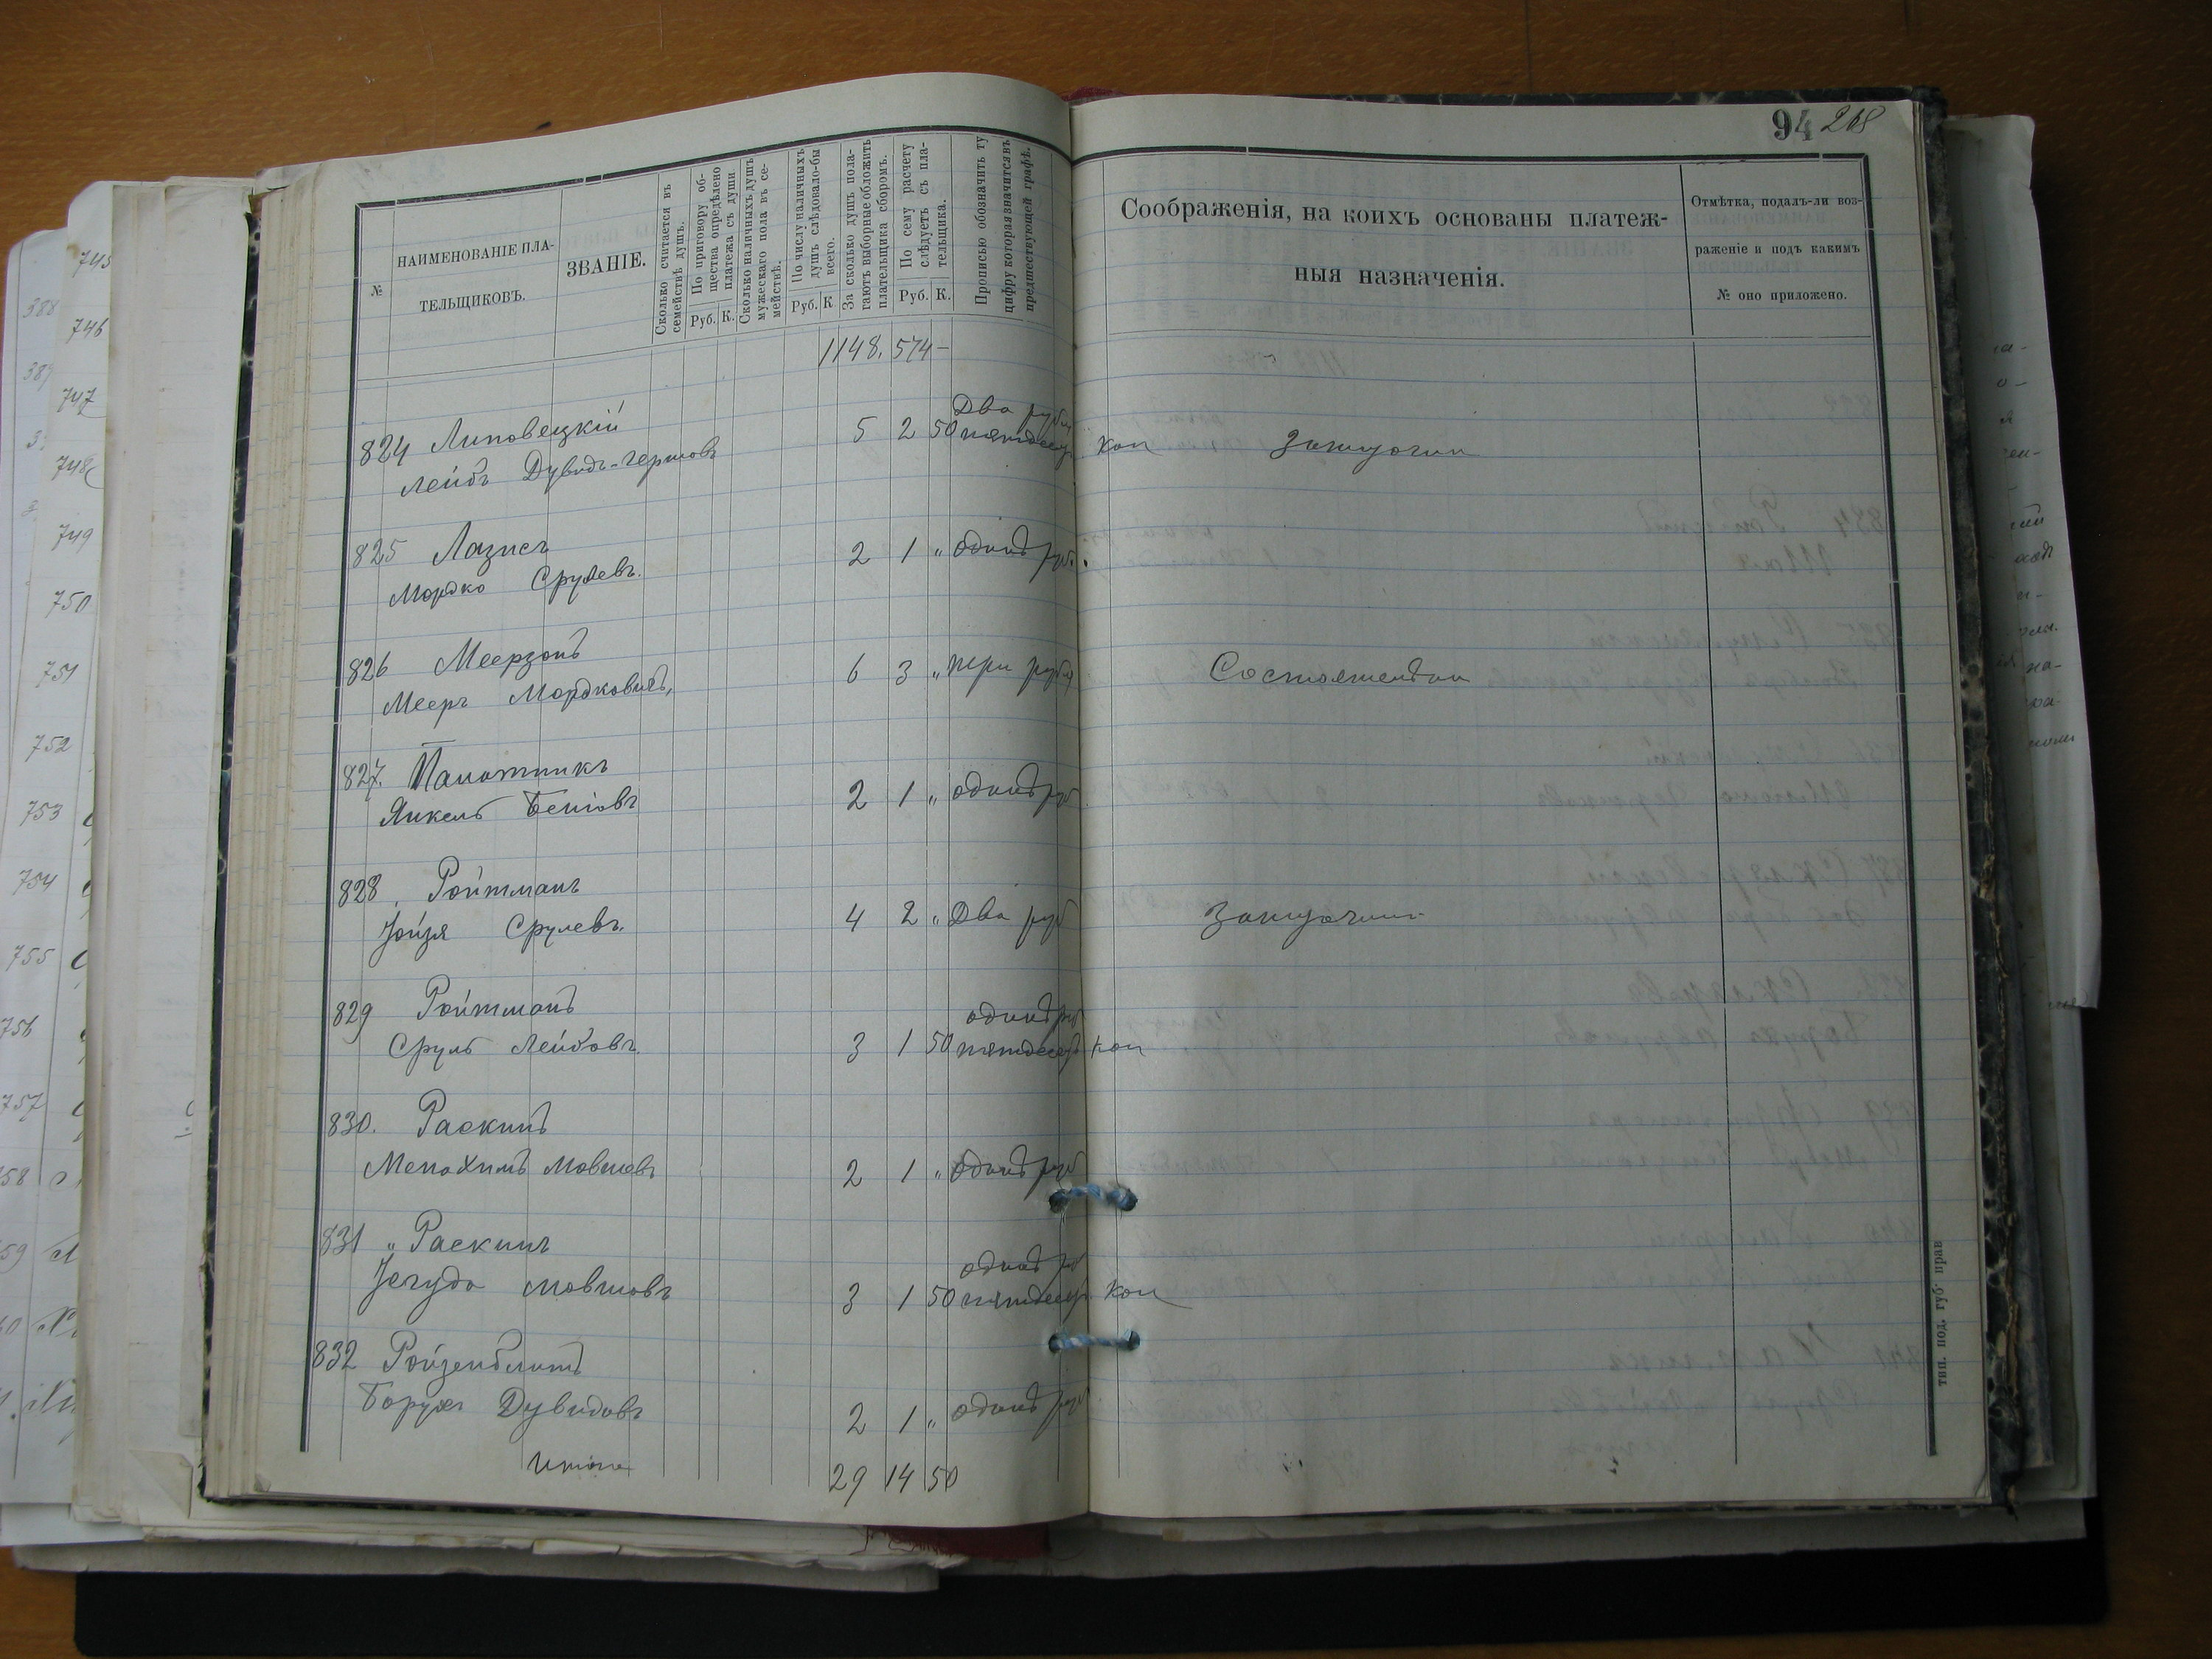 94 218
№
НАИМЕНОВАНІЕ ПЛА-
ТЕЛЬЩИКОВЪ.
ЗВАНІЕ.
Сколько считается въ
семействѣ душъ.
По приговору об-
щества опредѣлено
платежа съ души
Руб. К.
Сколько наличныхъ душъ
мужескаго пола въ се-
мействѣ.
По числу наличныхъ
душъ слѣдовало-бы
всего.
Руб. К
За сколько душъ пола-
гаютъ выборные обложить
плательщика сборомъ.
По сему расчету
слѣдуетъ съ пла-
тельщика.
Руб. К.
Прописью обозначить ту
цифру которая значится въ
предшествующей графѣ.
Соображенія, на коихъ основаны платеж-
ныя назначенія.
Отмѣтка, подалъ-ли воз-
раженіе и подъ какимъ
№ оно приложено.
1148. 574 -
824 Липовецкій
Лейбъ Дувидъ-Гершовъ
5 2 50
Два рубл
пятдесят коп
Зажиточни
825 Лазисъ
Мордко Срулевъ.
2 1 " одинъ руб.
826 Меерзонъ
Мееръ Мордковичъ,
6 3 " три рубл
Состоятелни
827. Памотникъ
Янкель Беніовъ
2 1 " одинъ руб
828. Ройтманъ
Іойзя Срулевъ.
4 2 " Два руб
Зажиточни
829 Ройтманъ
Сруль Лейбовъ.
3 1 50
одинъ ру
пятдесят коп
830. Раскинъ
Менахимъ Мовшевъ
2 1 " одинъ руб
831 " Раскинъ
Іегуда Мовшовъ
3 1 50
одинъ ру
пятдесят коп
832 Ройзенблитъ
Борухъ Дувидовъ
2 1 " одинъ руб
Итого 29 14 50
тип. под. губ. прав
745
746
747
748
749
750
751
752
753
754
755
756
757